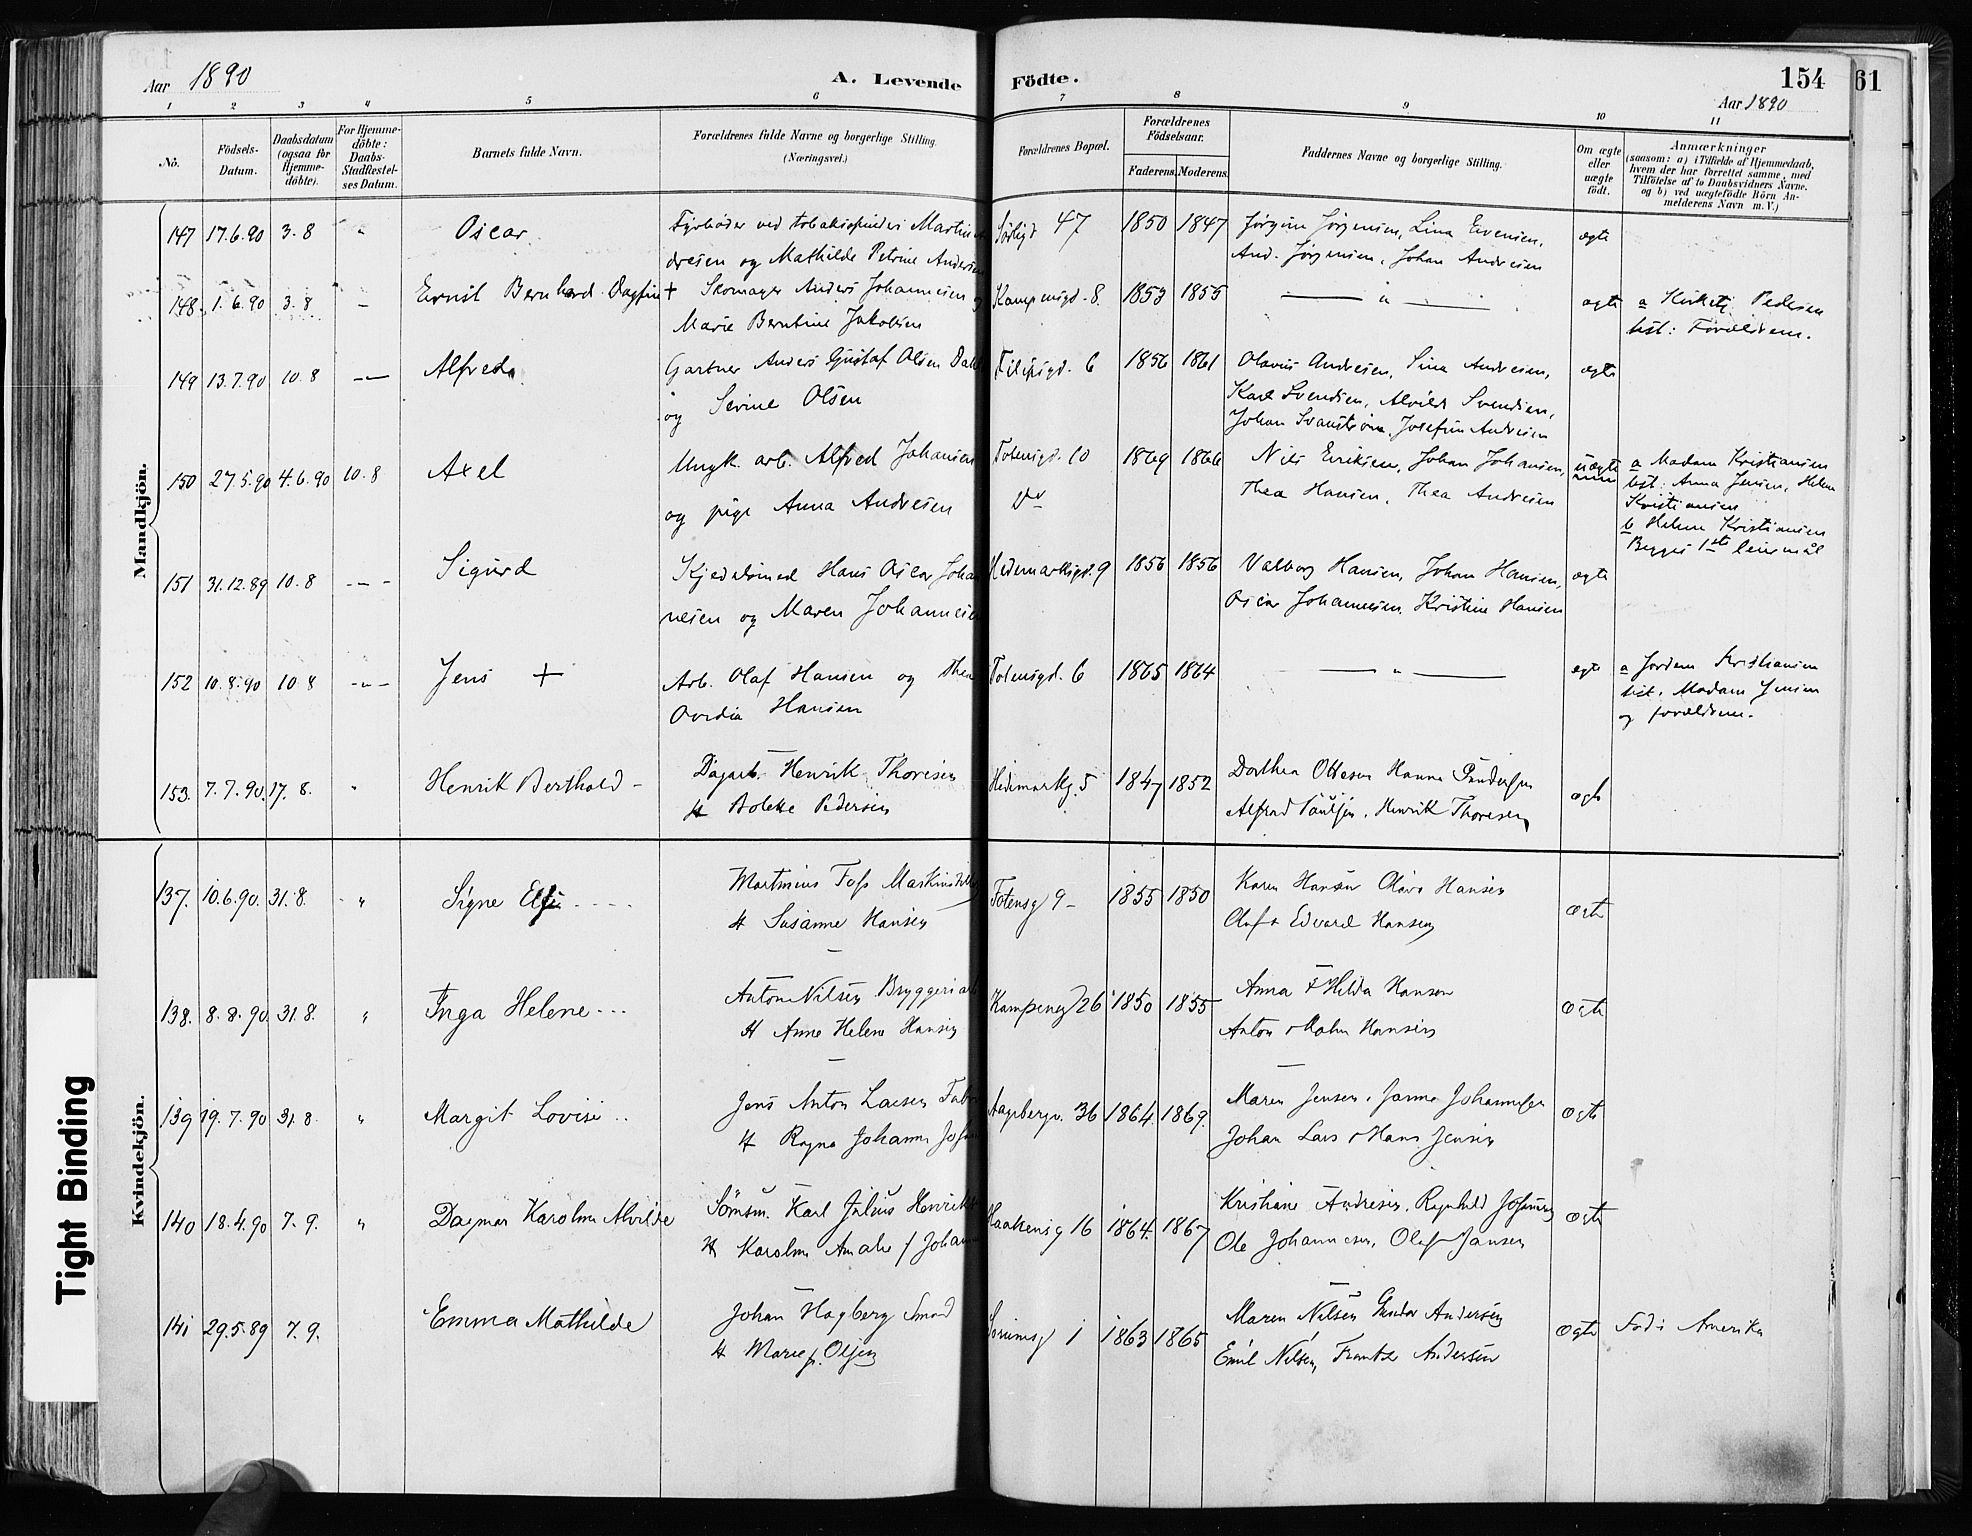 154 61
Aar 1890 A. Levende Födte. Aar 1890
1 2 3 4 5 6 7 8 9 10 11
No. Födsels-Datum. Daabsdatum (ogsaa för Hjemmedöbte). For Hjemmedöbte: Daabs-Stadfæstelses Datum. Barnets fulde Navn. Forældrenes fulde Navne og borgerlige Stilling. (Næringsvei.) Forældrenes Bopæl. Forældrenes Födselsaar. Faderens. Moderens. Faddernes Navne og borgerlige Stilling. Om ægte eller uægte födt. Anmærkninger (saasom: a) i Tilfælde af Hjemmedaab, hvem der har forrettet samme, med Tilföielse af to Daabsvidners Navne. og b) ved uægtefödte Börn Anmelderens Navn m. V.)
Mandkjön.
147 17.6.90 3.8 " Oscar Fyrbøder ved tobaksspinderi Martin An 47 1850 1847 Jørgine Jørgensen, Lina Evensen, ægte
dresen og Mathilde Petrine Andersen And. Jørgensen, Johan Andresen
148. 1.6.90 3.8 - Ernst Bernhard Dagfin + Skomager Anders Johannesen og Kampensgd. 8. 1853 1855 — " — ægte a Kirketj. Pedersen
Marie Berntine Jakobsen vist: Forældrene.
149 13.7.90 10.8 -"- Alfred Gartner Anders Gustaf Olsen Dahl Filipsgd. 6 1856 1861 Olavus Andresen, Lina Andresen, ægte
og Serine Olsen Karl Svendsen, Alvilde Svendsen,
Johan Svanström, Josefine Andresen
150 27.5.90 4.6.90 10.8 Axel Ungk. arb. Alfred Johansen Totensgd. 10 1869 1866 Nils Eriksen, Johan Johansen, uægte a Madam Kristiansen
og pige Anna Andresen Thea Hansen, Thea Andresen vist: Anna Jensen, Helene
Kristiansen
b Helene Kristiansen
Begges 1ste leiermål
151 31.12.89 10.8 -"- Sigurd Kjedelsmed Hans Oscar Johan Hedemarksgd. 9 1856 1856 Valborg Hansen, Johan Hansen, ægte
nesen og Maren Johannesen Oscar Johannesen, Kristine Hansen
152 10.8.90 10.8 -"- Jens + Arb. Olaf Hansen og Thea Totensgd. 6 1865 1864 — " — ægte a Jordem. Kristiansen
Ovedia Hansen vist. Madam Jensen
og forældrene.
153. 7.7.90. 17.8. " Henrik Berthold - Dagarb. Henrik Thoresen Hedemarkg. 5 1847 1852 Dorthea Ottesen Hanna ægte
H Bolette Pedersen Alfred Paulsen. Henrik Thoresen
Kvindekjön.
137. 10.6.90. 31.8. " Signe Martinius Foss Totensg 9 - 1855 1850 Karen Hansen Olava Hansen ægte
H Susanne Hansen Olaf + Edvard Hansen
138. 8.8.90. 31.8. " Inga Helene Anton Nilsen Bryggeriarb Kampensg 26 1850 1855 Anna + Hilda Hansen ægte
H Anne Helene Hansen Anton Hansen
139 19.7.90 31.8. " Margit Lovise Jens Anton Larsen Fabr Aagebergv. 36 1864. 1869. Maren Jensen, Johannesen ægte
H Ragna Johanne Johan Lars Hans Jensen
140 18.4.90 7.9. " Dagmar Karoline Alvilde Sömm. Karl Julius Henriks Haakonsg 16 1864. 1867 Kristiane Andresen. Ragnhild ægte
H Karoline Amalie f Johann Ole Johannesen, Olaf Jansen
141 29.5.89 7.9. Emma Mathilde Johan Hagberg Smed Sörumsg 1 1863 1865 Maren Nilsen Andersen ægte Föd i Amerika
H Marie f. Olsen Emil Nilsen, Frants Andersen
Tight Binding